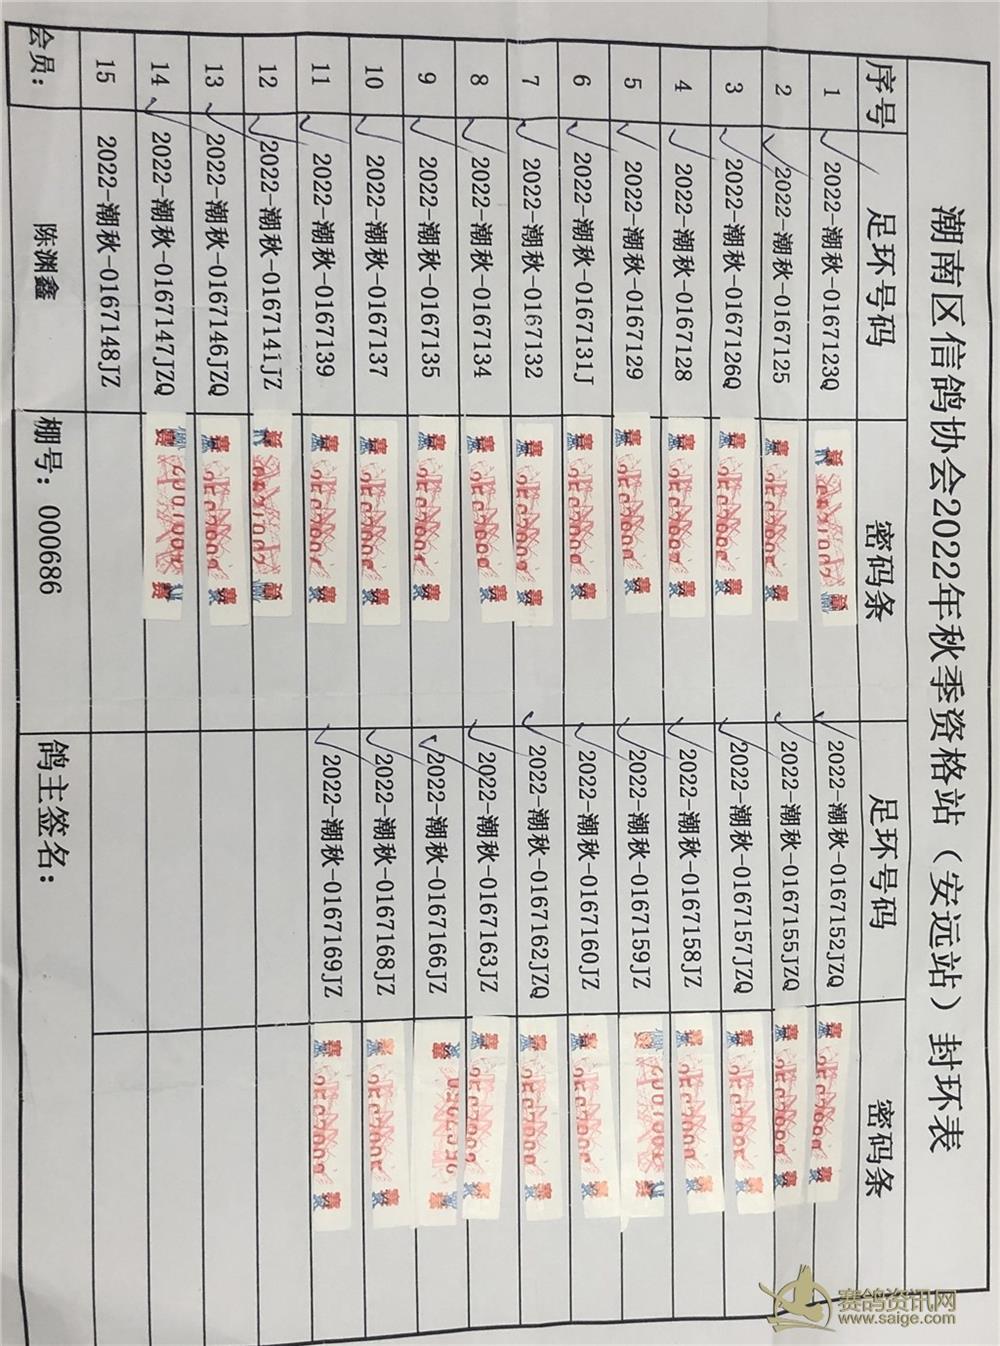 潮南区信鸽协会2022年秋季资格站（安远站）封环表
序号 足环号码 密码条 足环号码 密码条
1 2022-潮秋-0167123Q 2022-潮秋-0167152JZQ
2 2022-潮秋-0167125 2022-潮秋-0167155JZQ
3 2022-潮秋-0167126Q 2022-潮秋-0167157JZQ
4 2022-潮秋-0167128 2022-潮秋-0167158JZ
5 2022-潮秋-0167129 2022-潮秋-0167159JZ
6 2022-潮秋-0167131J 2022-潮秋-0167160JZ
7 2022-潮秋-0167132 2022-潮秋-0167162JZQ
8 2022-潮秋-0167134 2022-潮秋-0167163JZ
9 2022-潮秋-0167135 2022-潮秋-0167166JZ
10 2022-潮秋-0167137 2022-潮秋-0167168JZ
11 2022-潮秋-0167139 2022-潮秋-0167169JZ
12 2022-潮秋-0167141JZ
13 2022-潮秋-0167146JZQ
14 2022-潮秋-0167147JZQ
15 2022-潮秋-0167148JZ
会员： 陈渊鑫 棚号：000686 鸽主签名：
赛鸽资讯网
www.saige.com